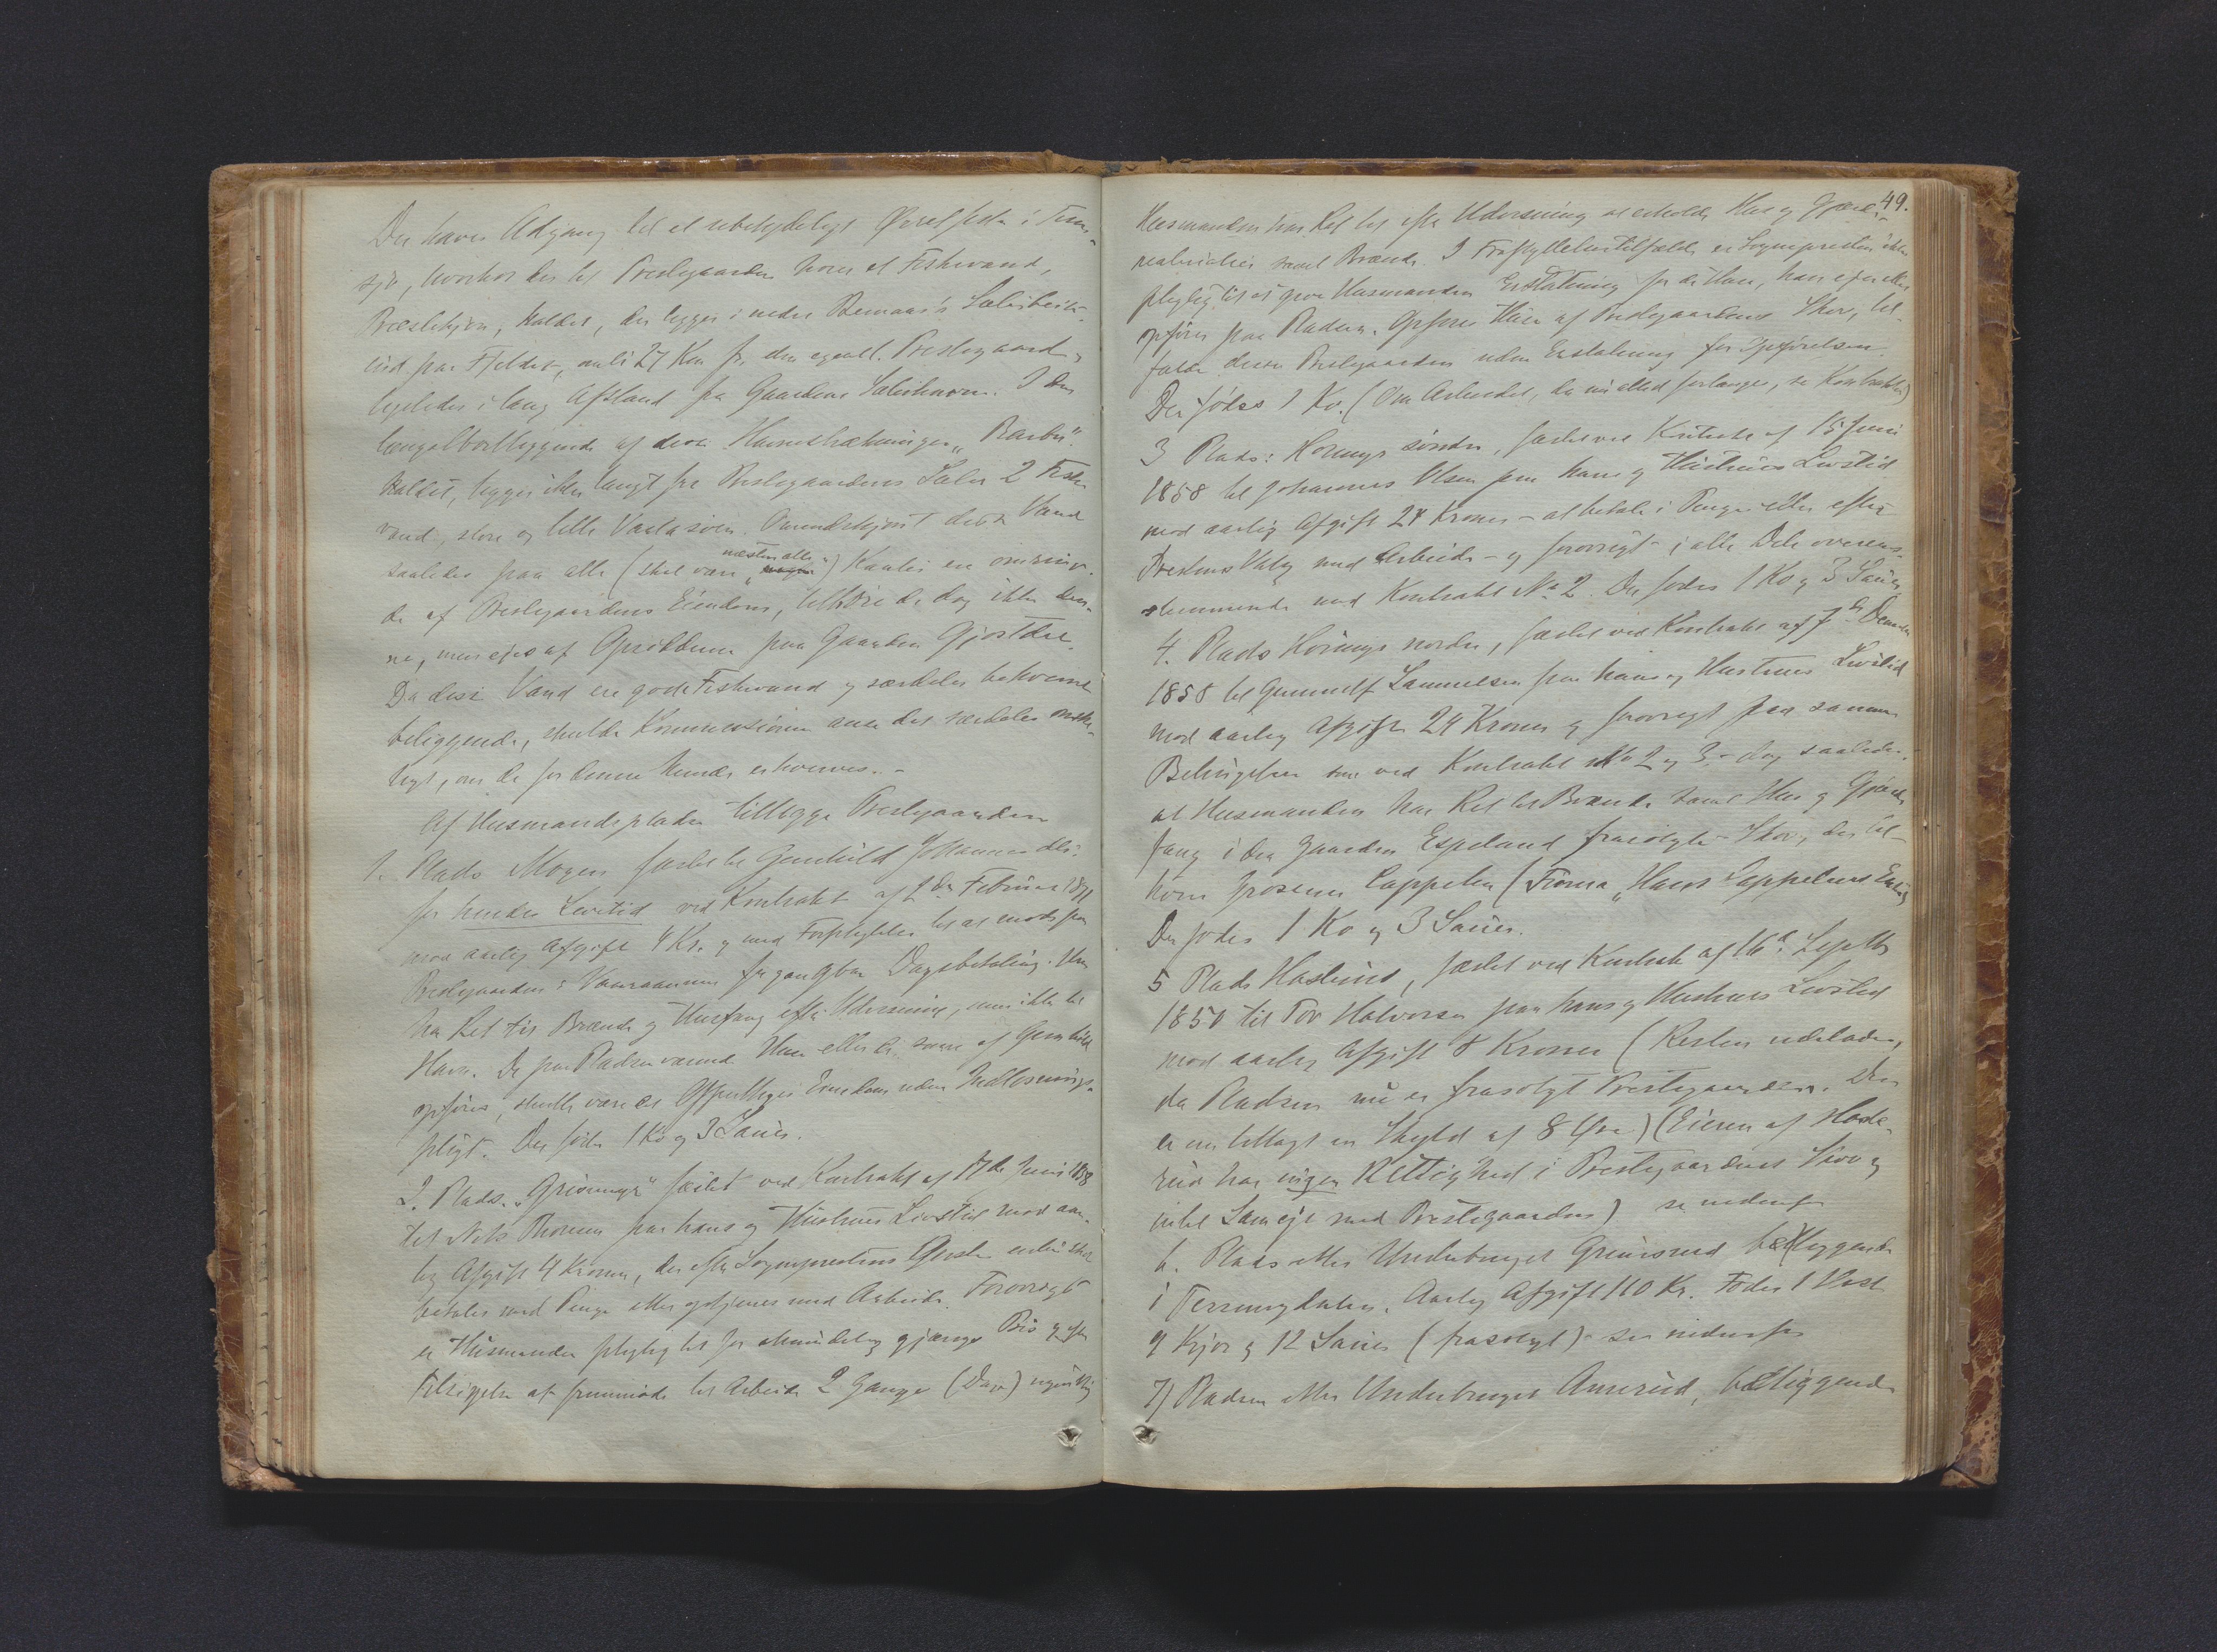 Der haves Adgang til et ubetydeligt Ørretfiske i Tin-
sjø, hvorhos der til Prestegaarden hører et Fiskevand,
Præstetjern, kaldet, der ligger i nedre Sæterbeite
lid paa Fjeldet, omtr 27 Km fra den egentl. Prestegaard,
ligeledes i lang Afstand fra Gaardens Sæterhavn. I den
længstbortliggende af disse Havnestrækninger, "Barbu"
kaldet, ligger ikke langt fra Prestegaardens Sæter 2 Fiske-
vand, store og lille Vaslasøen. Omendskjønt disse Vand
saaledes paa alle (skal være "næsten alle") Kanter ere omringe-
de af Prestegaardens Eiendom, tilhøre de dog ikke den-
ne, men ejes af Opsidderne paa Gaarden Gjøstdøl.
Da disse Vand ere gode Fiskevand og særdeles bekvemt
beliggende, skulde Kommissionen anse det særdeles ønske-
ligt, om de for denne kunde erhverves. -
Af Husmandspladse tilligge Prestegaarden
1. Plads Mogen fæstet til Gunhild Johannesdtr.
for hendes Levetid ved Kontrakt af 1 de Februar 1871
mod aarlig Afgift 4 Kr. og med Forpligtelse til at møde paa
Prestegaarden i Vaaraannen for gangbar Dagsbetaling. Hun
har Ret til Brænde og Husfang efter Udvisning, men ikke til
Havn. De paa Pladsen værende Huse eller de som af Gunhild
opføres, skulle være det Offentliges Eiendom uden Indløsnings-
pligt. Der fødes 1 Ko og 3 Sauer.
2. Plads. "Grisemyr" fæstet ved Kontrakt af 17 de Juni 1858
til Nils Thorsen paa hans og Hustrues Livstid mod aar-
lig Afgift 4 Kroner, der efter Sogneprestens Ønske enten skal
betales med Penge eller aftjenes med Arbeide. Forøvrigt
er Husmanden pligtig til for almindelig gjængs Pris og efter
Tilsigelse at fremmøde til Arbeide 2 Gange (Dage) ugentlig
49.
Husmanden har Ret til efter Udvisning at erholde Hus og Gjærde-
materialier samt Brænde. I Fraflyttelsestilfælde er Sognepresten ikke
pligtig til at give Husmanden Erstatning for de Huse, han ejer eller
opfører paa Pladsen. Opføres Huse af Prestegaardens Skov, til-
falde disse Prestegaarden uden Erstatning for Opførelsen.
Der fødes 1 Ko. (Om Arbeidet, der nu altid forlanges, se Kontrakten)
3 Plads: Hormyr søndre, fæstet ved Kontrakt af 15 Juni
1858 til Johannes Olsen paa hans og Hustrues Livstid
mod aarlig Afgift 24 Kroner - at betale i Penge eller efter
Prestens Valg med Arbeide - og forøvrigt i alle Dele overens-
stemmende med Kontrakt No 2. Der fødes 1 Ko og 3 Sauer
4. Plads Hormyr nordre, fæstet ved Kontrakt af 7 de Decembr
1858 til Gunnulf Samuelsen paa hans og Hustrues Livstid
mod aarlig Afgift 24 Kroner og forøvrigt paa samme
Betingelser som ved Kontrakt No 2 og 3 - dog saaledes,
at Husmanden har Ret til Brænde samt Hus og Gjærde
fang i den Gaarden Espeland frasolgte Skov, der til-
hører Cappelen (Firma "Hans Cappelens Enke")
Der fødes 1 Ko og 3 Sauer.
5 Plads Haslerud, fæstet ved Kontrakt af 16 de Septbr
1850 til Tov Halvorsen paa hans og Hustrues Livstid
mod aarlig Afgift 8 Kroner (Resten udelades,
da Pladsen nu er frasolgt Prestegaarden. Den
er nu tillagt en Skyld af 8 Øre) (Eieren af Hasle-
rud har ingen Rettighed i Prestegaardens Skov og
intet Sameje med Prestegaarden) se nedenfor
6. Plads eller Underbruget Grimsrud beliggende
i Tessungdalen. Aarlig Afgift 110 Kr. Føder 1 Hest
9 Kjør og 12 Sauer (frasolgt) - se nedenfor
7) Pladsen eller Underbruget Amerud, beliggende